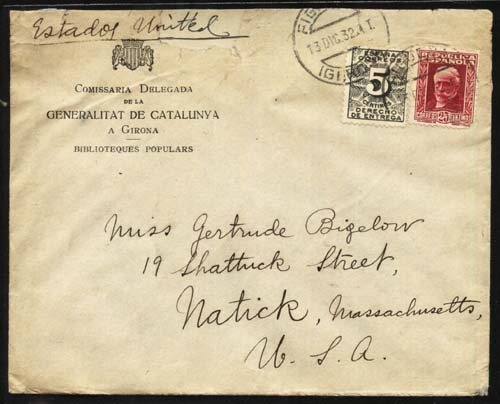 Estados Unidos
FIG
13 DIC. 32 .4 T.
(GI
ESPAÑA
CORREOS
5
CENTIMOS
DERECHO
DE ENTREGA
REPUBLICA
ESPAÑOLA
CORREOS 25 CENTIMOS
COMISSARIA DELEGADA
DE LA
GENERALITAT DE CATALUNYA
A GIRONA
BIBLIOTEQUES POPULARS
Miss Gertrude Bigelow
19 Shattuck Street,
Natick, Massachusetts,
U. S. A.